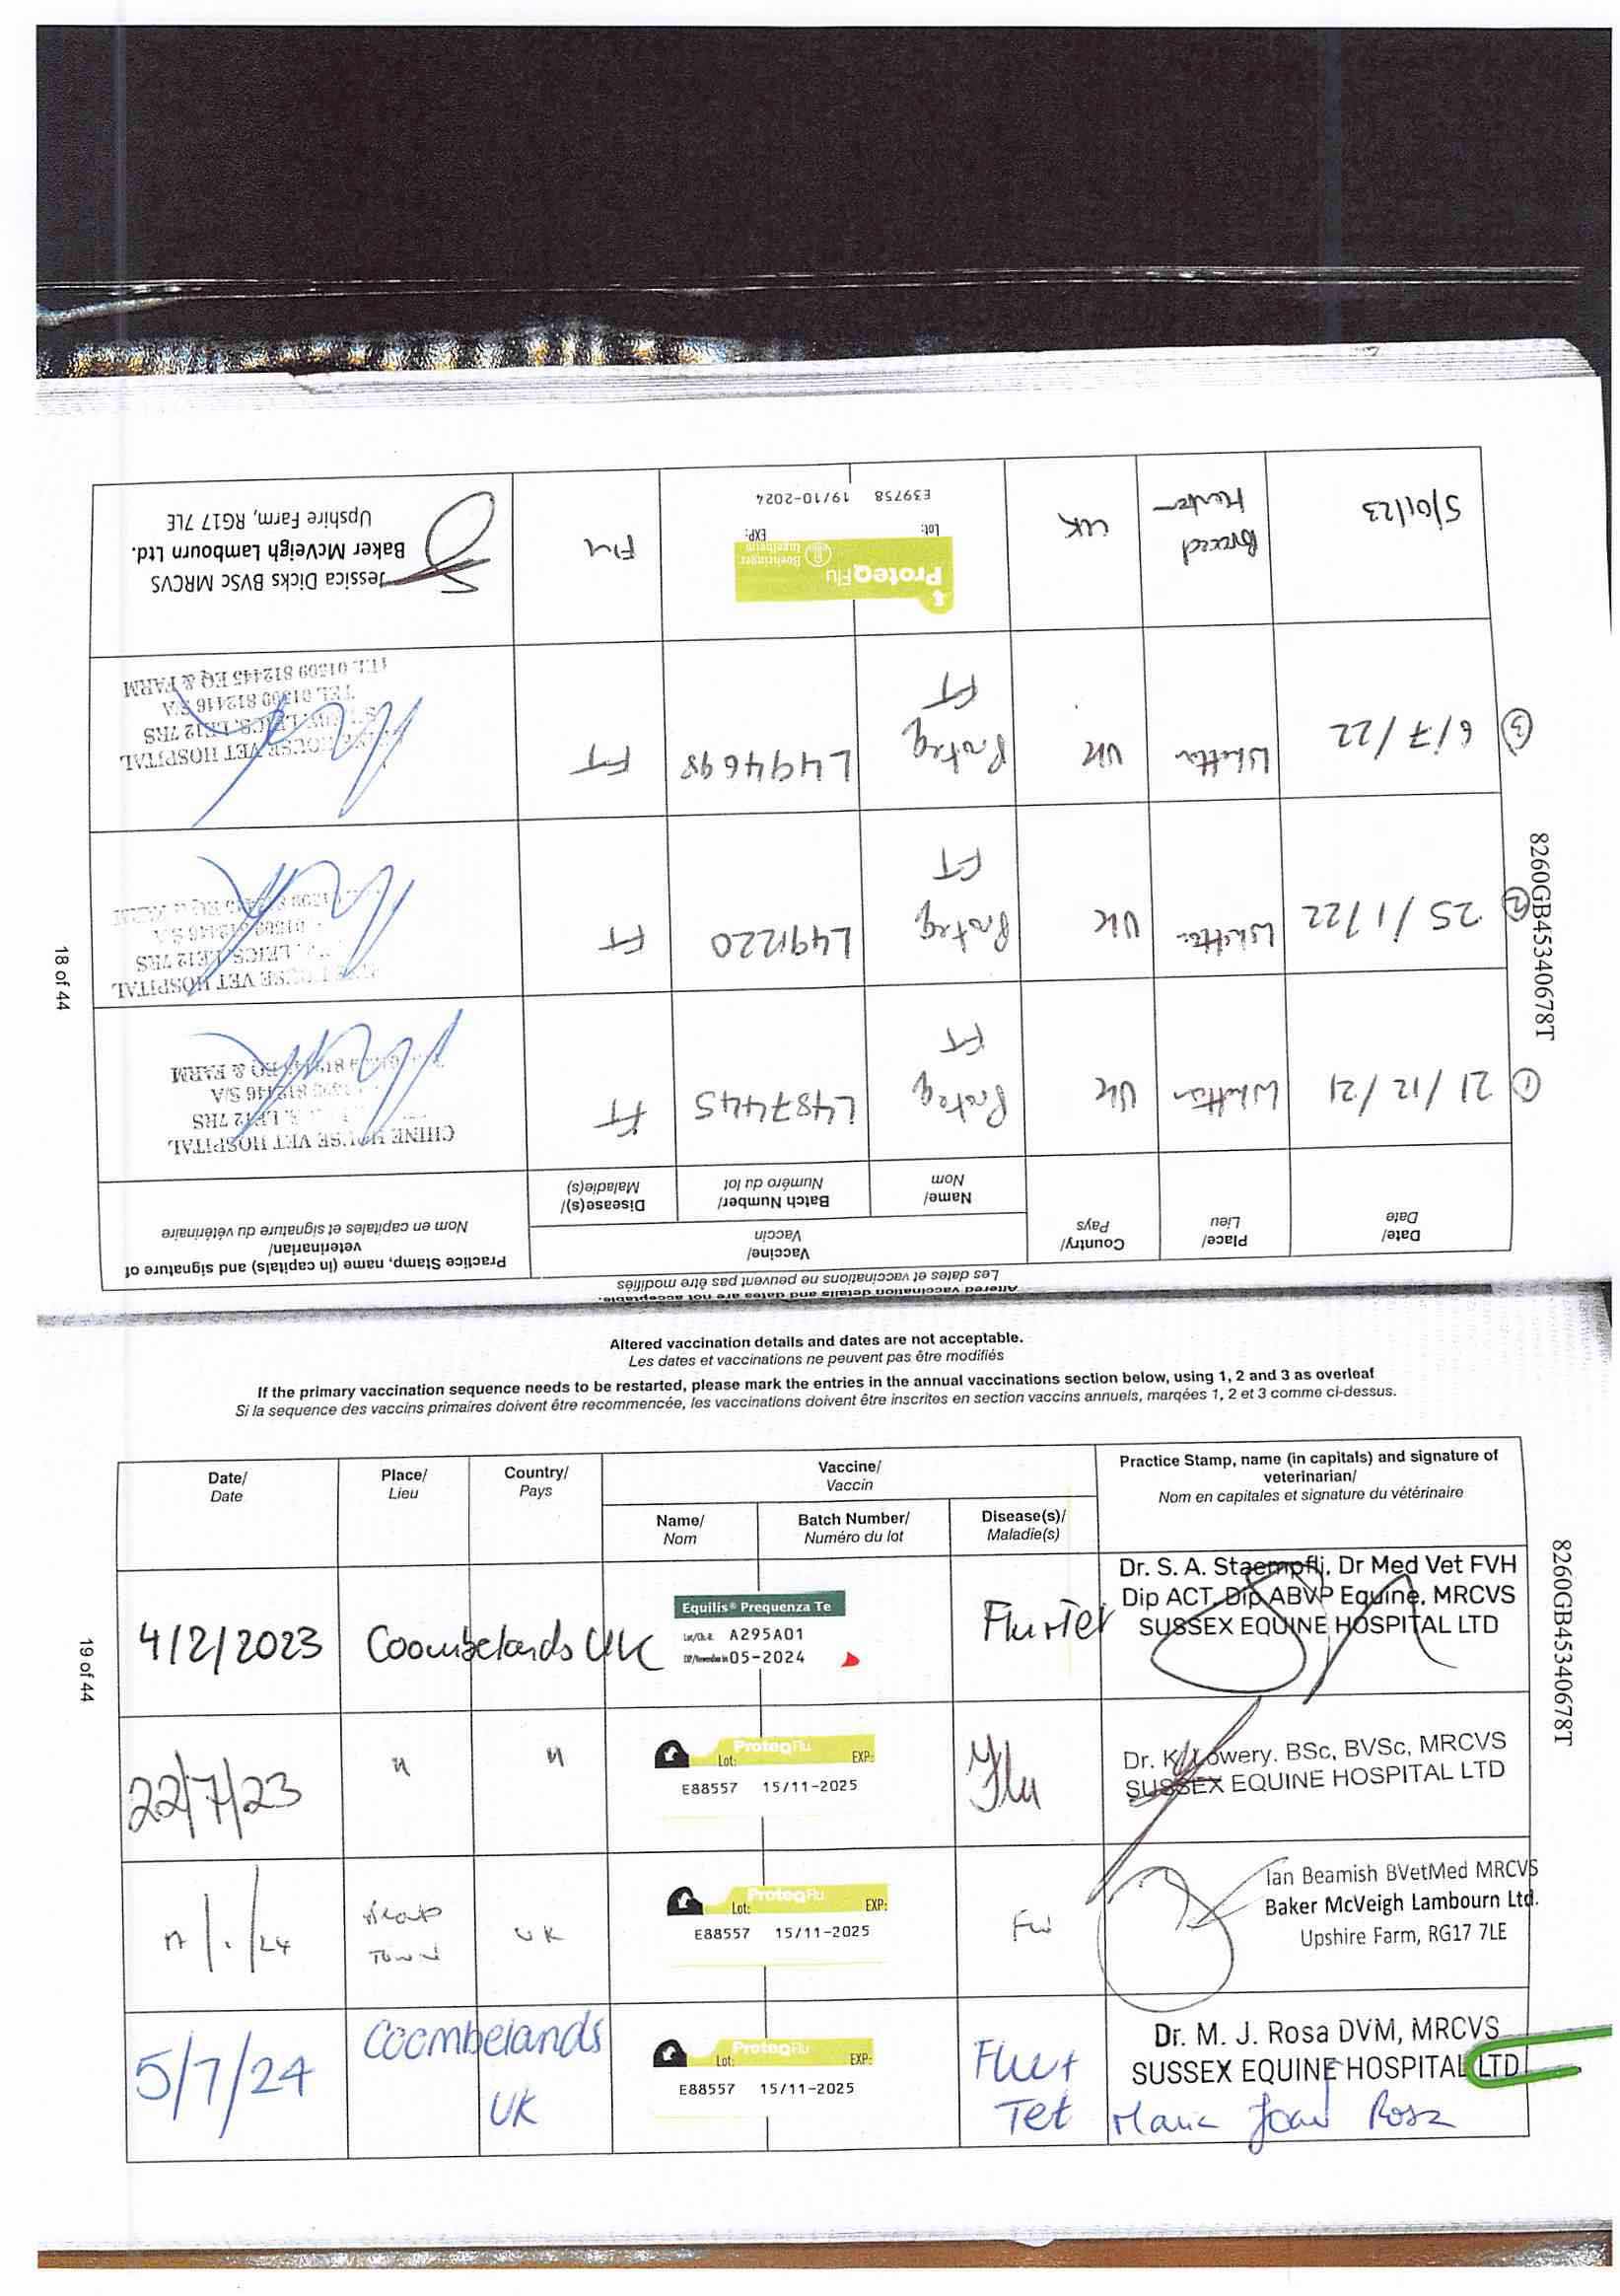 Altered vaccination details and dates are not acceptable.
Les dates et vaccinations ne peuvent pas être modifiés
Date/
Date
Place/
Lieu
Country/
Pays
Vaccine/
Vaccin
Name/
Nom
Batch Number/
Numéro du lot
Disease(s)/
Maladie(s)
Practice Stamp, name (in capitals) and signature of
veterinarian/
Nom en capitales et signature du vétérinaire
① 21/12/21
UK
Proteq
FT
L487445
FT
CHINE HOUSE VET HOSPITAL
LE12 7RS
812446 S/A
EQ & FARM
② 25/1/22
UK
Proteq
FT
L491220
FT
HOUSE VET HOSPITAL
LEICS. LE12 7RS
01509 812446 S/A
③ 6/7/22
UK
Proteq
FT
L494698
FT
HOUSE VET HOSPITAL
LEICS. LE12 7RS
TEL 01509 812446 S/A
TEL 01509 812445 EQ & FARM
5/01/23
UK
ProteqFlu
Boehringer
Ingelheim
Lot: EXP:
E39758 19/10-2024
Flu
Jessica Dicks BVSc MRCVS
Baker McVeigh Lambourn Ltd.
Upshire Farm, RG17 7LE
8260GB45340678T
18 of 44
Altered vaccination details and dates are not acceptable.
Les dates et vaccinations ne peuvent pas être modifiés
If the primary vaccination sequence needs to be restarted, please mark the entries in the annual vaccinations section below, using 1, 2 and 3 as overleaf
Si la sequence des vaccins primaires doivent être recommencée, les vaccinations doivent être inscrites en section vaccins annuels, marqées 1, 2 et 3 comme ci-dessus.
Date/
Date
Place/
Lieu
Country/
Pays
Vaccine/
Vaccin
Name/
Nom
Batch Number/
Numéro du lot
Disease(s)/
Maladie(s)
Practice Stamp, name (in capitals) and signature of
veterinarian/
Nom en capitales et signature du vétérinaire
4/2/2023
Coombelands UK
Equilis® Prequenza Te
A295A01
05-2024
Flu+Tet
Dr. S. A. Staempfli, Dr Med Vet FVH
Dip ACT, Dip ABVP Equine, MRCVS
SUSSEX EQUINE HOSPITAL LTD
22/7/23
"
"
ProteqFlu
Lot: EXP:
E88557 15/11-2025
Flu
Dr. K. Lowery. BSc, BVSc, MRCVS
SUSSEX EQUINE HOSPITAL LTD
Town
UK
ProteqFlu
Lot: EXP:
E88557 15/11-2025
Ian Beamish BVetMed MRCVS
Baker McVeigh Lambourn Ltd.
Upshire Farm, RG17 7LE
5/7/24
Coombelands
UK
ProteqFlu
Lot: EXP:
E88557 15/11-2025
Flu+
Tet
Dr. M. J. Rosa DVM, MRCVS
SUSSEX EQUINE HOSPITAL LTD
Maria Joao Rosa
8260GB45340678T
19 of 44